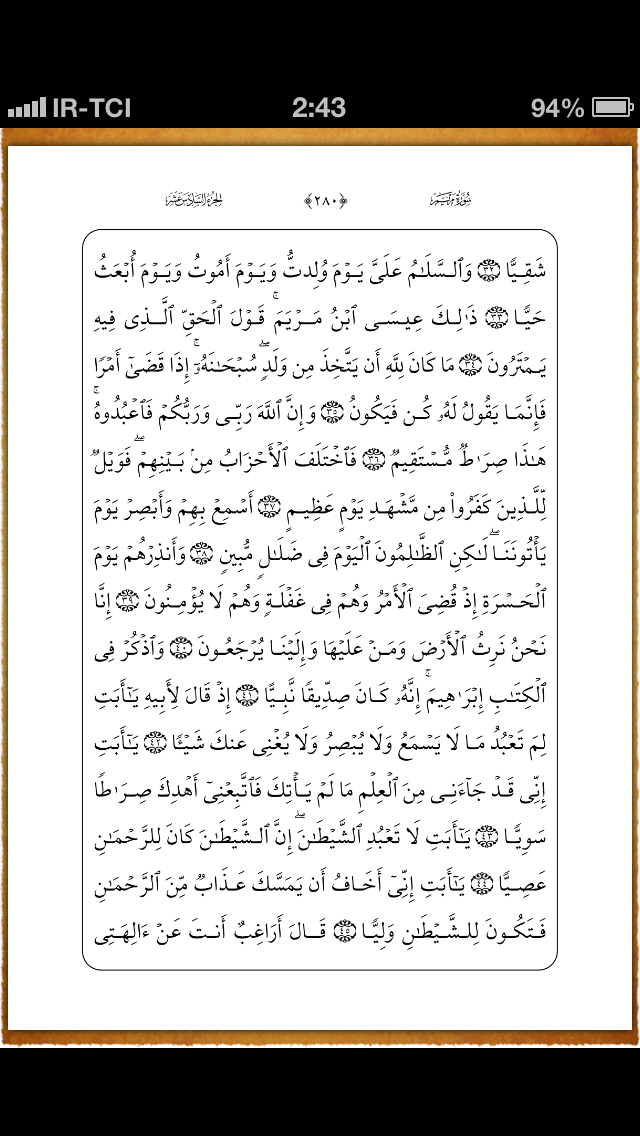 IR-TCI 2:43 94%
سُورَةُ مَرْيَمَ ﴿٢٨٠﴾ الجُزْءُ السَّادِسَ عَشَرَ
شَقِيًّا ٣٢ وَٱلسَّلَٰمُ عَلَىَّ يَوْمَ وُلِدتُّ وَيَوْمَ أَمُوتُ وَيَوْمَ أُبْعَثُ
حَيًّا ٣٣ ذَٰلِكَ عِيسَى ٱبْنُ مَرْيَمَ ۚ قَوْلَ ٱلْحَقِّ ٱلَّذِى فِيهِ
يَمْتَرُونَ ٣٤ مَا كَانَ لِلَّهِ أَن يَتَّخِذَ مِن وَلَدٍ ۖ سُبْحَٰنَهُۥٓ ۚ إِذَا قَضَىٰٓ أَمْرًا
فَإِنَّمَا يَقُولُ لَهُۥ كُن فَيَكُونُ ٣٥ وَإِنَّ ٱللَّهَ رَبِّى وَرَبُّكُمْ فَٱعْبُدُوهُ ۚ
هَٰذَا صِرَٰطٌ مُّسْتَقِيمٌ ٣٦ فَٱخْتَلَفَ ٱلْأَحْزَابُ مِنۢ بَيْنِهِمْ ۖ فَوَيْلٌ
لِّلَّذِينَ كَفَرُوا۟ مِن مَّشْهَدِ يَوْمٍ عَظِيمٍ ٣٧ أَسْمِعْ بِهِمْ وَأَبْصِرْ يَوْمَ
يَأْتُونَنَا ۖ لَٰكِنِ ٱلظَّٰلِمُونَ ٱلْيَوْمَ فِى ضَلَٰلٍ مُّبِينٍ ٣٨ وَأَنذِرْهُمْ يَوْمَ
ٱلْحَسْرَةِ إِذْ قُضِىَ ٱلْأَمْرُ وَهُمْ فِى غَفْلَةٍ وَهُمْ لَا يُؤْمِنُونَ ٣٩ إِنَّا
نَحْنُ نَرِثُ ٱلْأَرْضَ وَمَنْ عَلَيْهَا وَإِلَيْنَا يُرْجَعُونَ ٤٠ وَٱذْكُرْ فِى
ٱلْكِتَٰبِ إِبْرَٰهِيمَ ۚ إِنَّهُۥ كَانَ صِدِّيقًا نَّبِيًّا ٤١ إِذْ قَالَ لِأَبِيهِ يَٰٓأَبَتِ
لِمَ تَعْبُدُ مَا لَا يَسْمَعُ وَلَا يُبْصِرُ وَلَا يُغْنِى عَنكَ شَيْـًٔا ٤٢ يَٰٓأَبَتِ
إِنِّى قَدْ جَآءَنِى مِنَ ٱلْعِلْمِ مَا لَمْ يَأْتِكَ فَٱتَّبِعْنِىٓ أَهْدِكَ صِرَٰطًا
سَوِيًّا ٤٣ يَٰٓأَبَتِ لَا تَعْبُدِ ٱلشَّيْطَٰنَ ۖ إِنَّ ٱلشَّيْطَٰنَ كَانَ لِلرَّحْمَٰنِ
عَصِيًّا ٤٤ يَٰٓأَبَتِ إِنِّىٓ أَخَافُ أَن يَمَسَّكَ عَذَابٌ مِّنَ ٱلرَّحْمَٰنِ
فَتَكُونَ لِلشَّيْطَٰنِ وَلِيًّا ٤٥ قَالَ أَرَاغِبٌ أَنتَ عَنْ ءَالِهَتِى